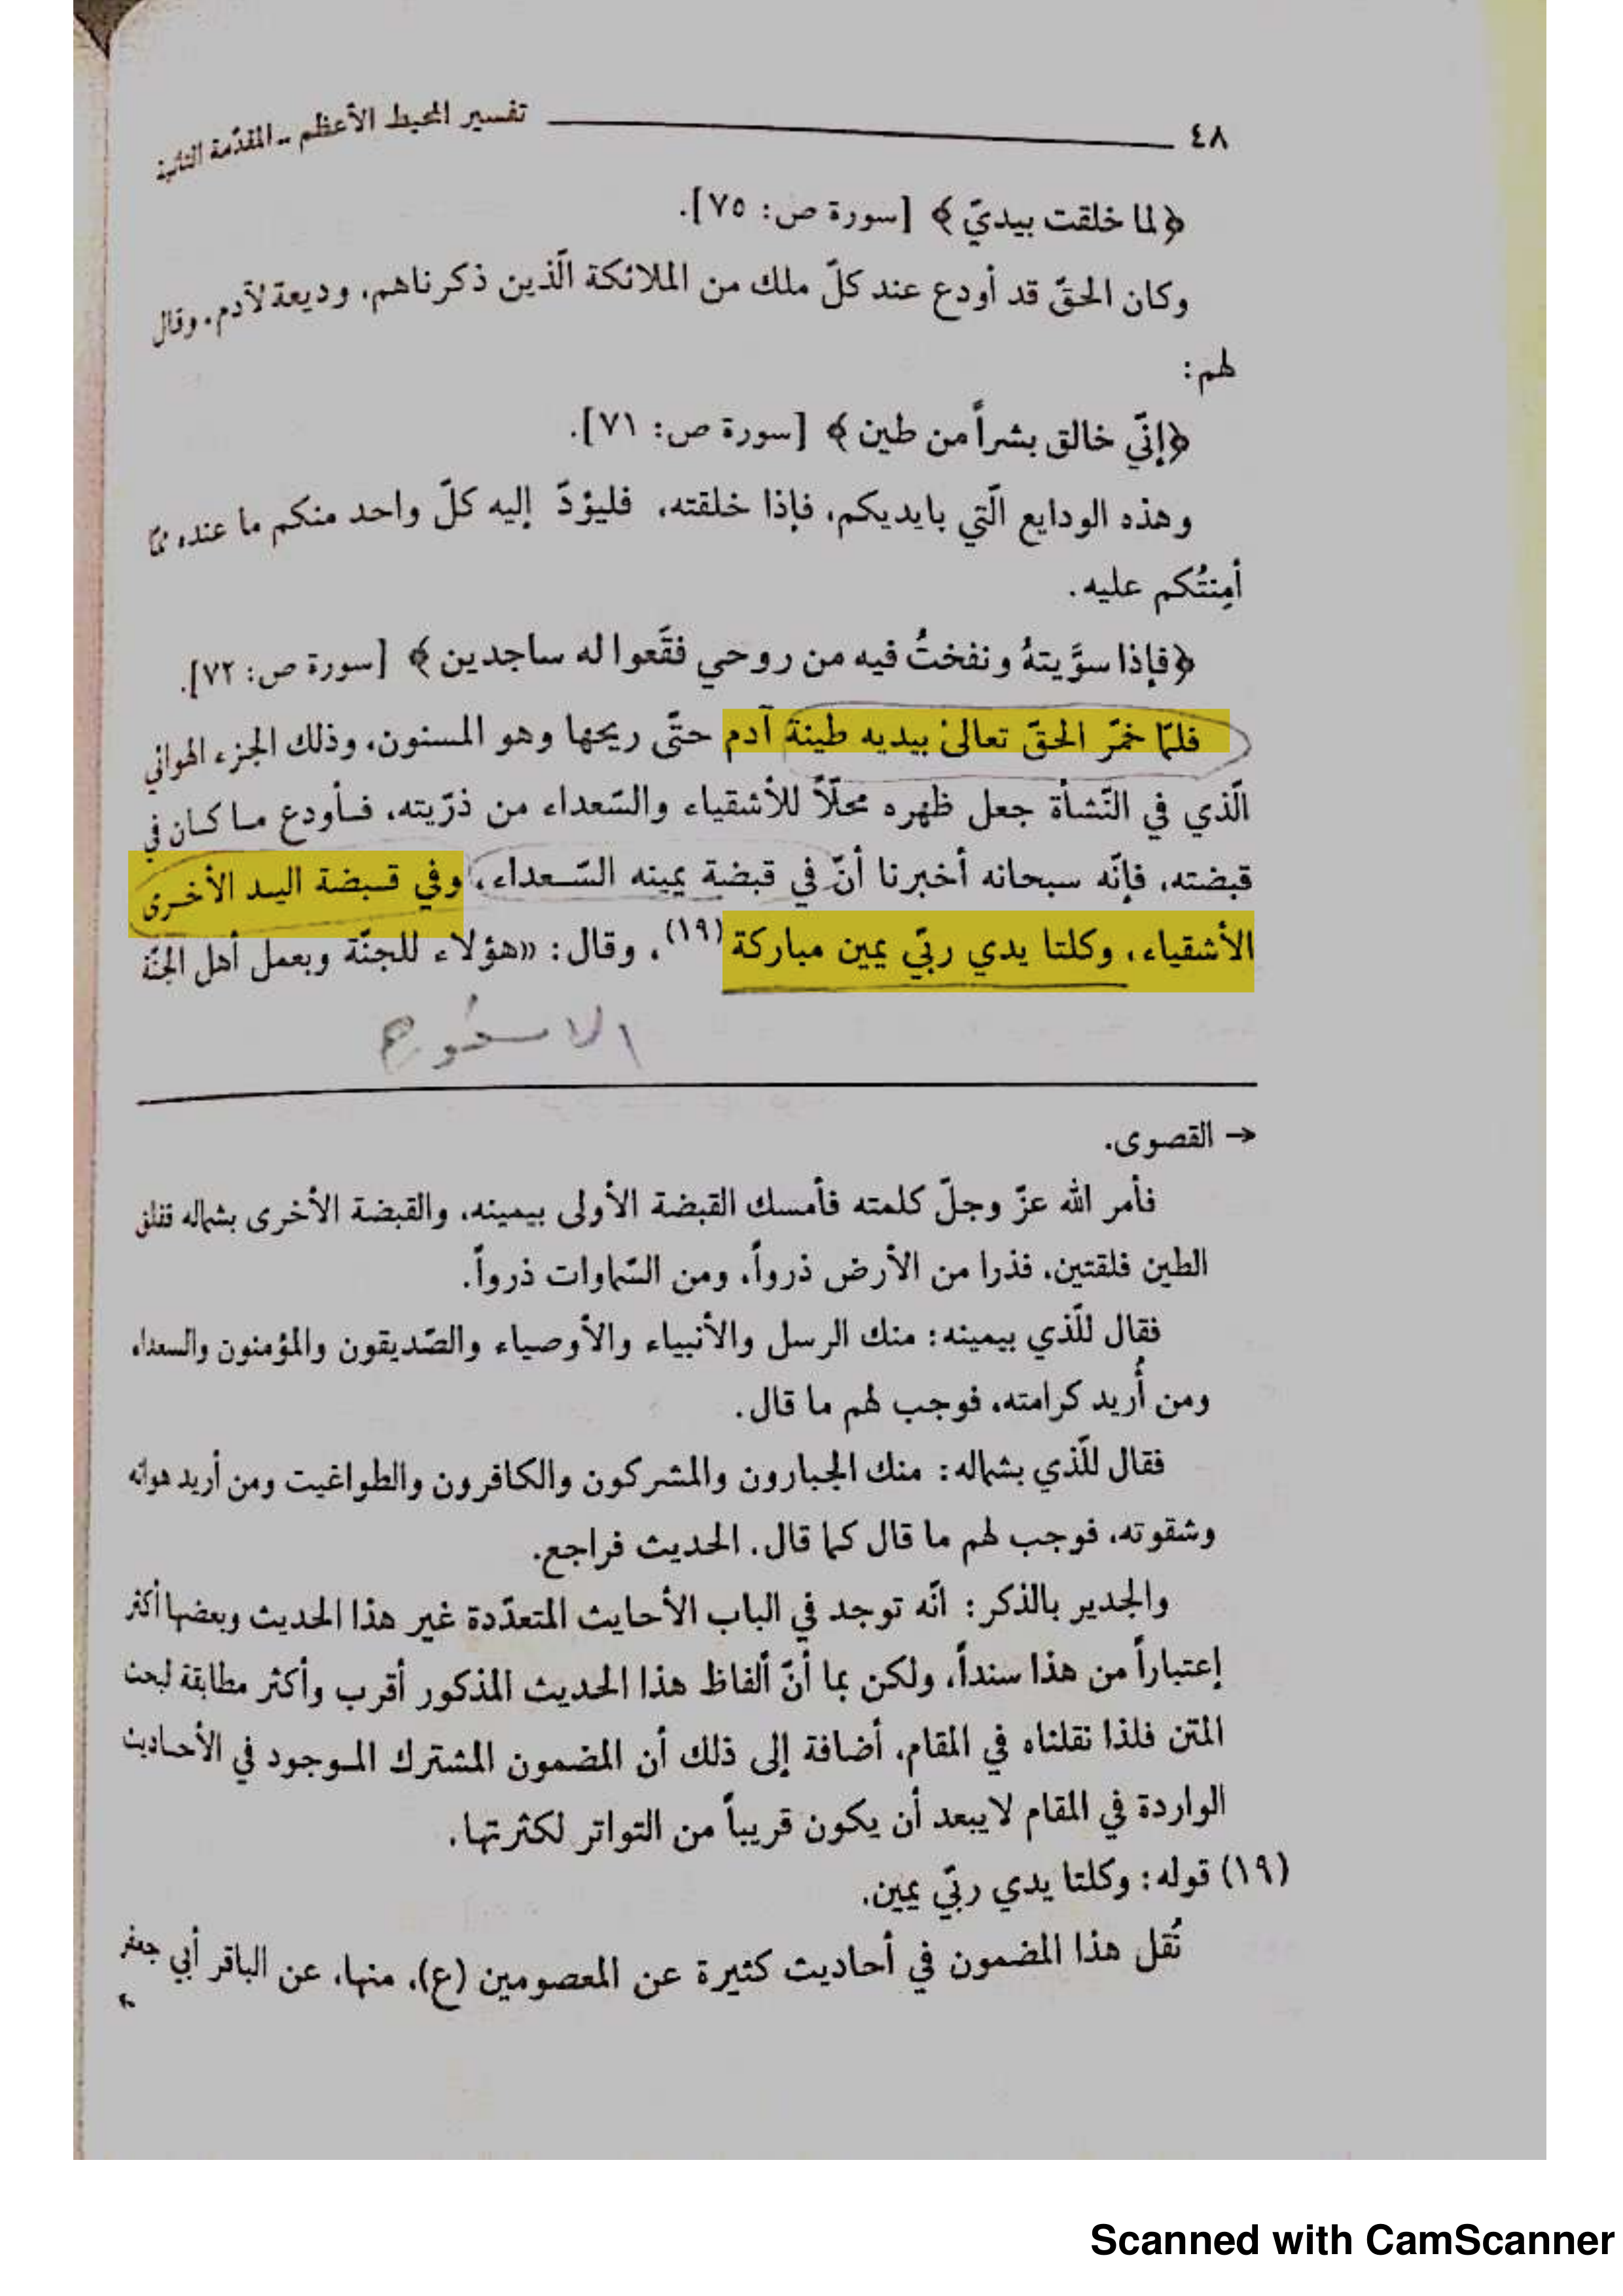 ٤٨ تفسير المحيط الأعظم - المقدّمة الثانية
﴿لما خلقت بيديّ﴾ [سورة ص: ٧٥].
وكان الحقّ قد أودع عند كلّ ملك من الملائكة الّذين ذكرناهم، وديعة لآدم، وقال
لهم:
﴿إنّي خالق بشراً من طين﴾ [سورة ص: ٧١].
وهذه الودايع الّتي بايديكم، فإذا خلقته، فليؤدّ إليه كلّ واحد منكم ما عنده ممّا
أمِنتُكم عليه.
﴿فإذا سوَّيتهُ ونفختُ فيه من روحي فقَعوا له ساجدين﴾ [سورة ص: ٧٢].
فلمّا خمّر الحقّ تعالىٰ بيديه طينة آدم حتّى ريحها وهو المسنون، وذلك الجزء الهوائي
الّذي في النّشأة جعل ظهره محلّاً للأشقياء والسّعداء من ذرّيته، فأودع ما كان في
قبضته، فإنّه سبحانه أخبرنا أنّ في قبضة يمينه السّعداء، وفي قبضة اليد الأخرى
الأشقياء، وكلتا يدي ربّي يمين مباركة (١٩)، وقال: «هؤلاء للجنّة وبعمل أهل الجنّة
→ القصوى.
فأمر الله عزّ وجلّ كلمته فأمسك القبضة الأولى بيمينه، والقبضة الأخرى بشماله ففلق
الطين فلقتين، فذرا من الأرض ذرواً، ومن السّماوات ذرواً.
فقال للّذي بيمينه: منك الرسل والأنبياء والأوصياء والصّديقون والمؤمنون والسعداء
ومن أُريد كرامته، فوجب لهم ما قال.
فقال للّذي بشماله: منك الجبارون والمشركون والكافرون والطواغيت ومن أريد هوانه
وشقوته، فوجب لهم ما قال كما قال. الحديث فراجع.
والجدير بالذكر: انّه توجد في الباب الأحايث المتعدّدة غير هذا الحديث وبعضها أكثر
إعتباراً من هذا سنداً، ولكن بما أنّ ألفاظ هذا الحديث المذكور أقرب وأكثر مطابقة لبحث
المتن فلذا نقلناه في المقام، أضافة إلى ذلك أن المضمون المشترك الموجود في الأحاديث
الواردة في المقام لايبعد أن يكون قريباً من التواتر لكثرتها.
(١٩) قوله: وكلتا يدي ربّي يمين.
نُقل هذا المضمون في أحاديث كثيرة عن المعصومين (ع)، منها، عن الباقر أبي جعفر
Scanned with CamScanner